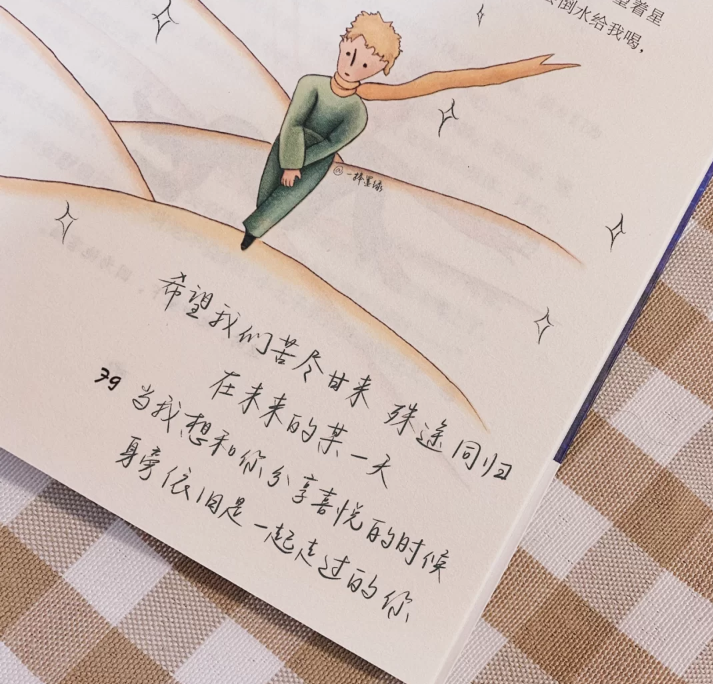 望着星
倒水给我喝，
@一抹墨绿
希望我们苦尽甘来 殊途同归
在未来的某一天
79
当我想和你分享喜悦的时候
身旁依旧是一起走过的你